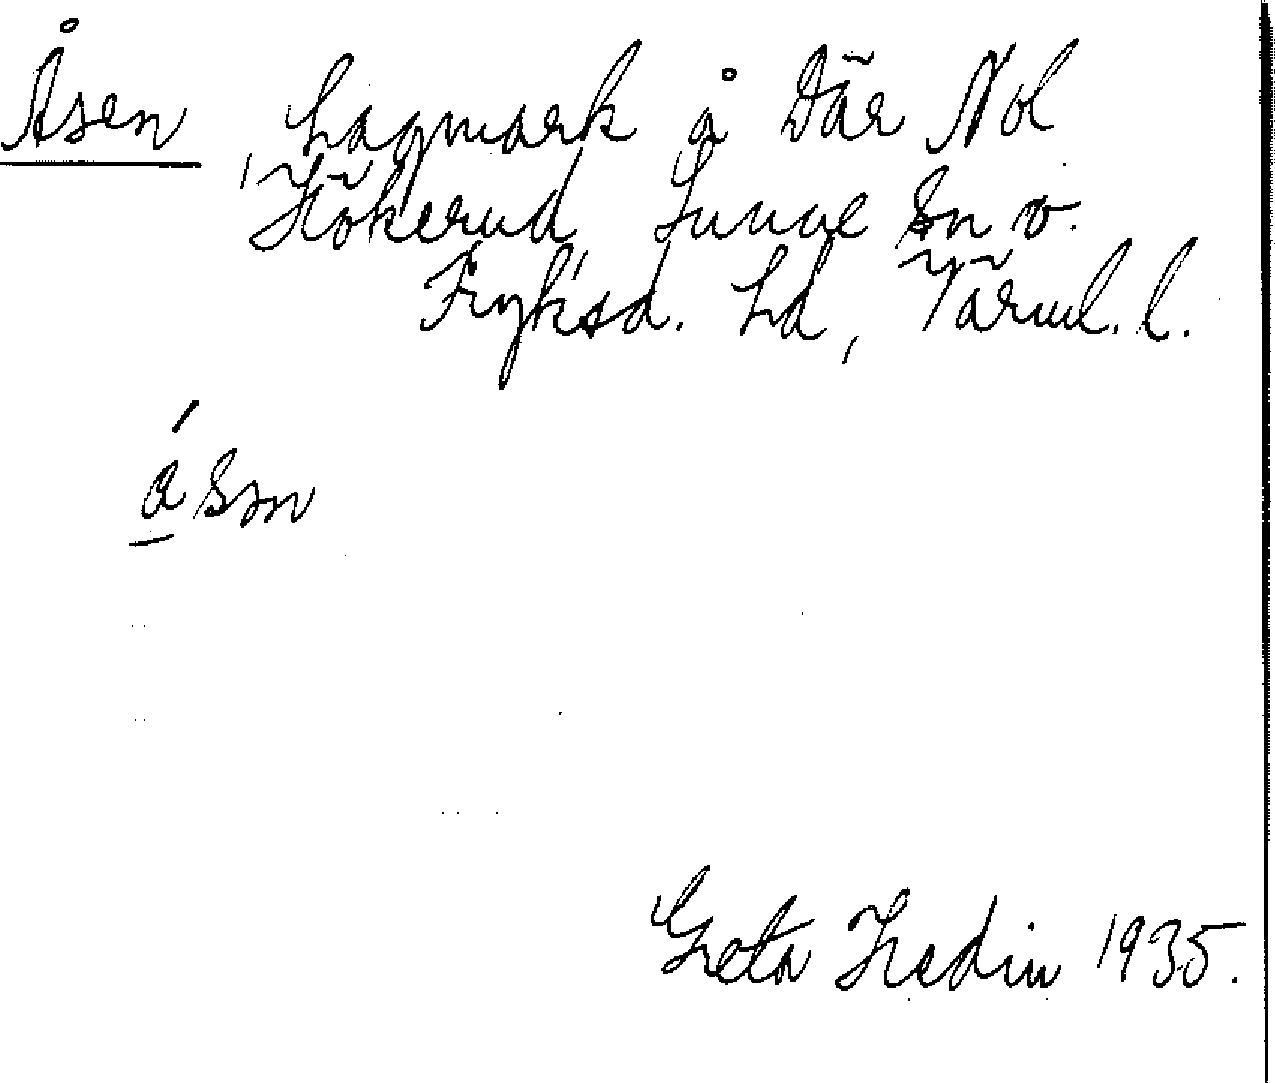 Åsen, hagmark å Där Nol
Hökerud, Sunne sn o.
Fryksd. hd, Värml. l.
ǻsm
Greta Hedin 1935.